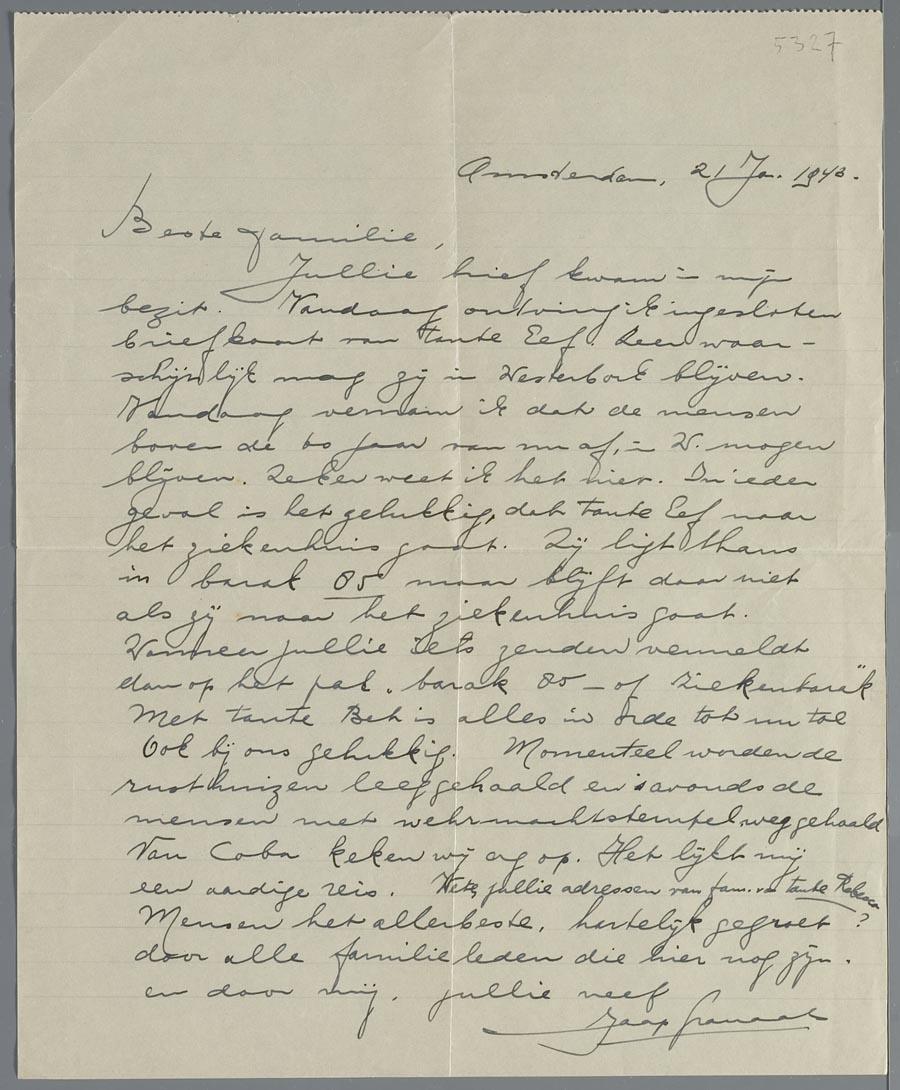 5327
Amsterdam, 21 Ja. 1943.
Beste familie,
Jullie brief kwam in mijn
bezit. Vandaag ontving ik ingesloten
briefkaart van tante Eef. Zeer waar-
schijnlijk mag zij in Westerbork blijven.
Vandaag vernam ik dat de mensen
boven de 60 jaar van nu af, in W. mogen
blijven. Zeker weet ik het niet. In ieder
geval is het gelukkig, dat tante Eef naar
het ziekenhuis gaat. Zij ligt thans
in barak 85 maar blijft daar niet
als zij naar het ziekenhuis gaat.
Wanneer jullie iets zenden vermeldt
dan op het pak. barak 85 - of ziekenbarak
Met tante Bet is alles in orde tot nu toe
Ook bij ons gelukkig. Momenteel worden de
rusthuizen leeggehaald en 's avonds de
mensen met wehrmachtstempel weggehaald
Van Coba keken wij erg op. Het lijkt mij
een aardige reis. Weten jullie adressen van fam. van tante Rebecca
?
Mensen het allerbeste, hartelijk gegroet
door alle familieleden die hier nog zijn.
en door mij, jullie neef
Jaap Granaat